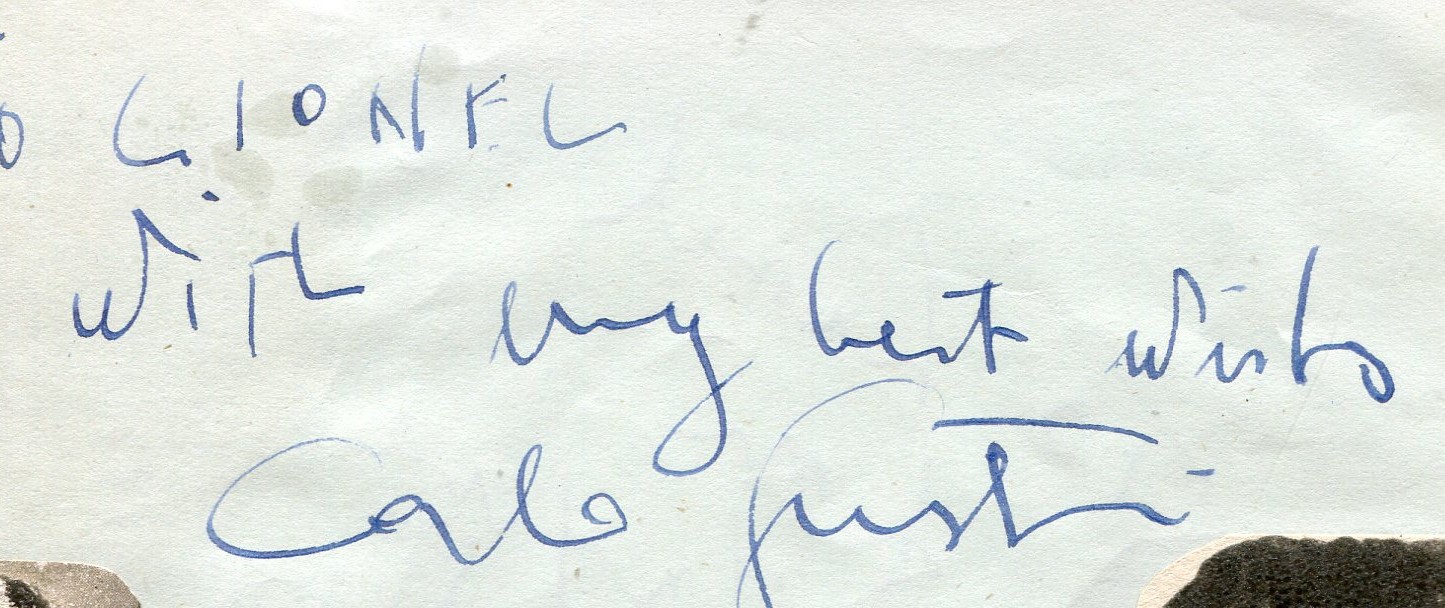 o LIONEL
With my best wishes
Carlo Justini